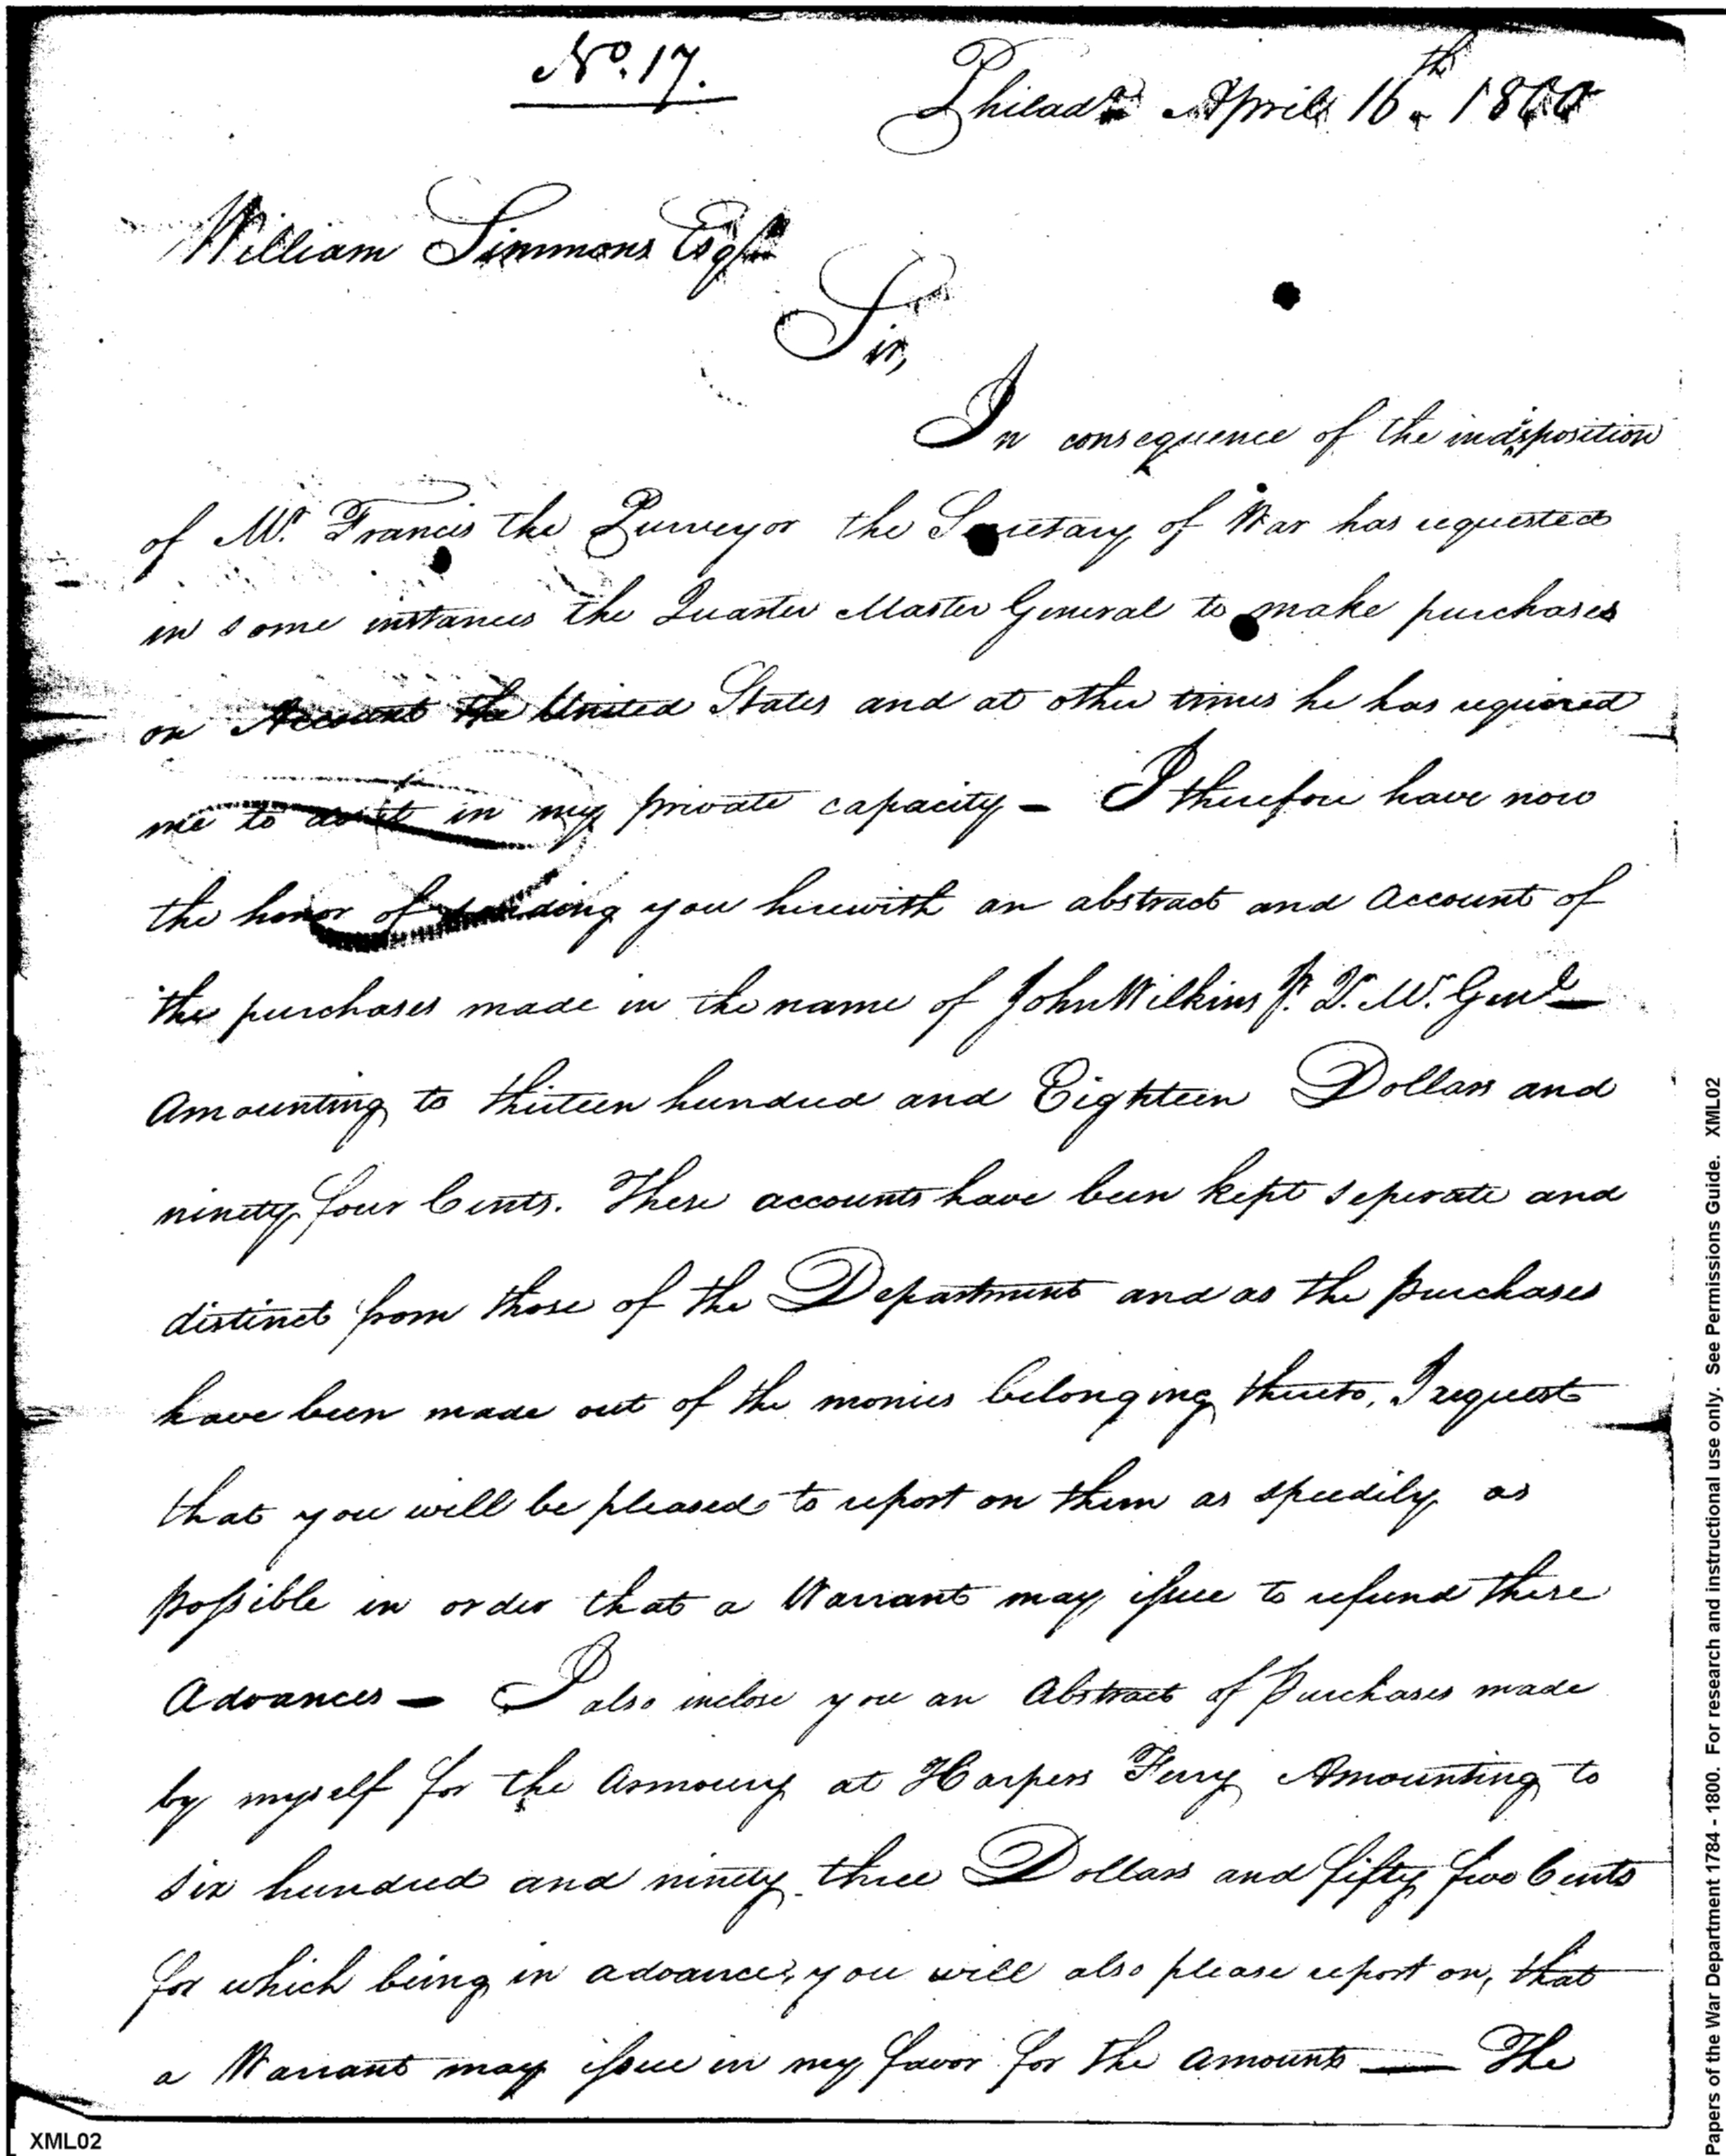 No. 17.
Philada. April 16th. 1800
William Simmons Esqr.
Sir,
In consequence of the indisposition
of Mr. Francis the Purveyor the Secretary of War has requested
in some instances the Quarter Master General to make purchases
on Account the United States and at other times he has required
me to do it in my private capacity — I therefore have now
the honor of sending you herewith an abstract and Account of
the purchases made in the name of John Wilkins Jr. Q. M. Genl.
Amounting to thirteen hundred and Eighteen Dollars and
ninety four Cents. These accounts have been kept seperate and
distinct from those of the Department and as the purchases
have been made out of the monies belonging thereto, I request
that you will be pleased to report on them as speedily as
possible in order that a Warrant may issue to refund these
Advances — I also inclose you an Abstract of Purchases made
by myself for the Armoury at Harpers Ferry Amounting to
six hundred and ninety three Dollars and fifty two Cents
for which being in advance, you will also please report on, that
a Warrant may issue in my favor for the amount — The
XML02
Papers of the War Department 1784 - 1800. For research and instructional use only. See Permissions Guide. XML02